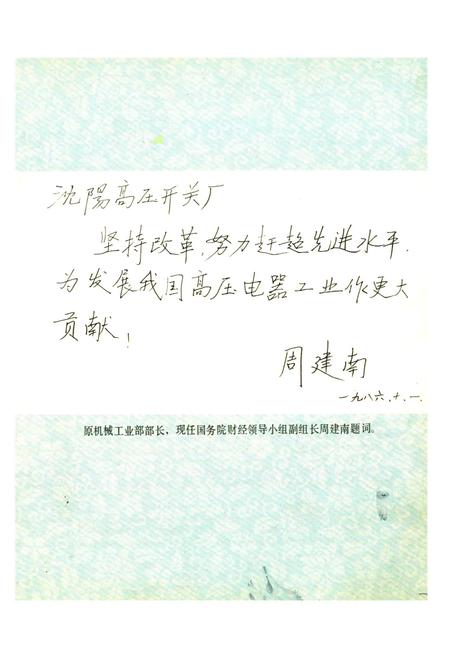 沈陽高压开关厂
坚持改革,努力赶超先进水平.
为发展我国高压电器工业作更大
贡献!
周建南
一九八六.十.一.
原机械工业部部长,现任国务院财经领导小组副组长周建南题词。